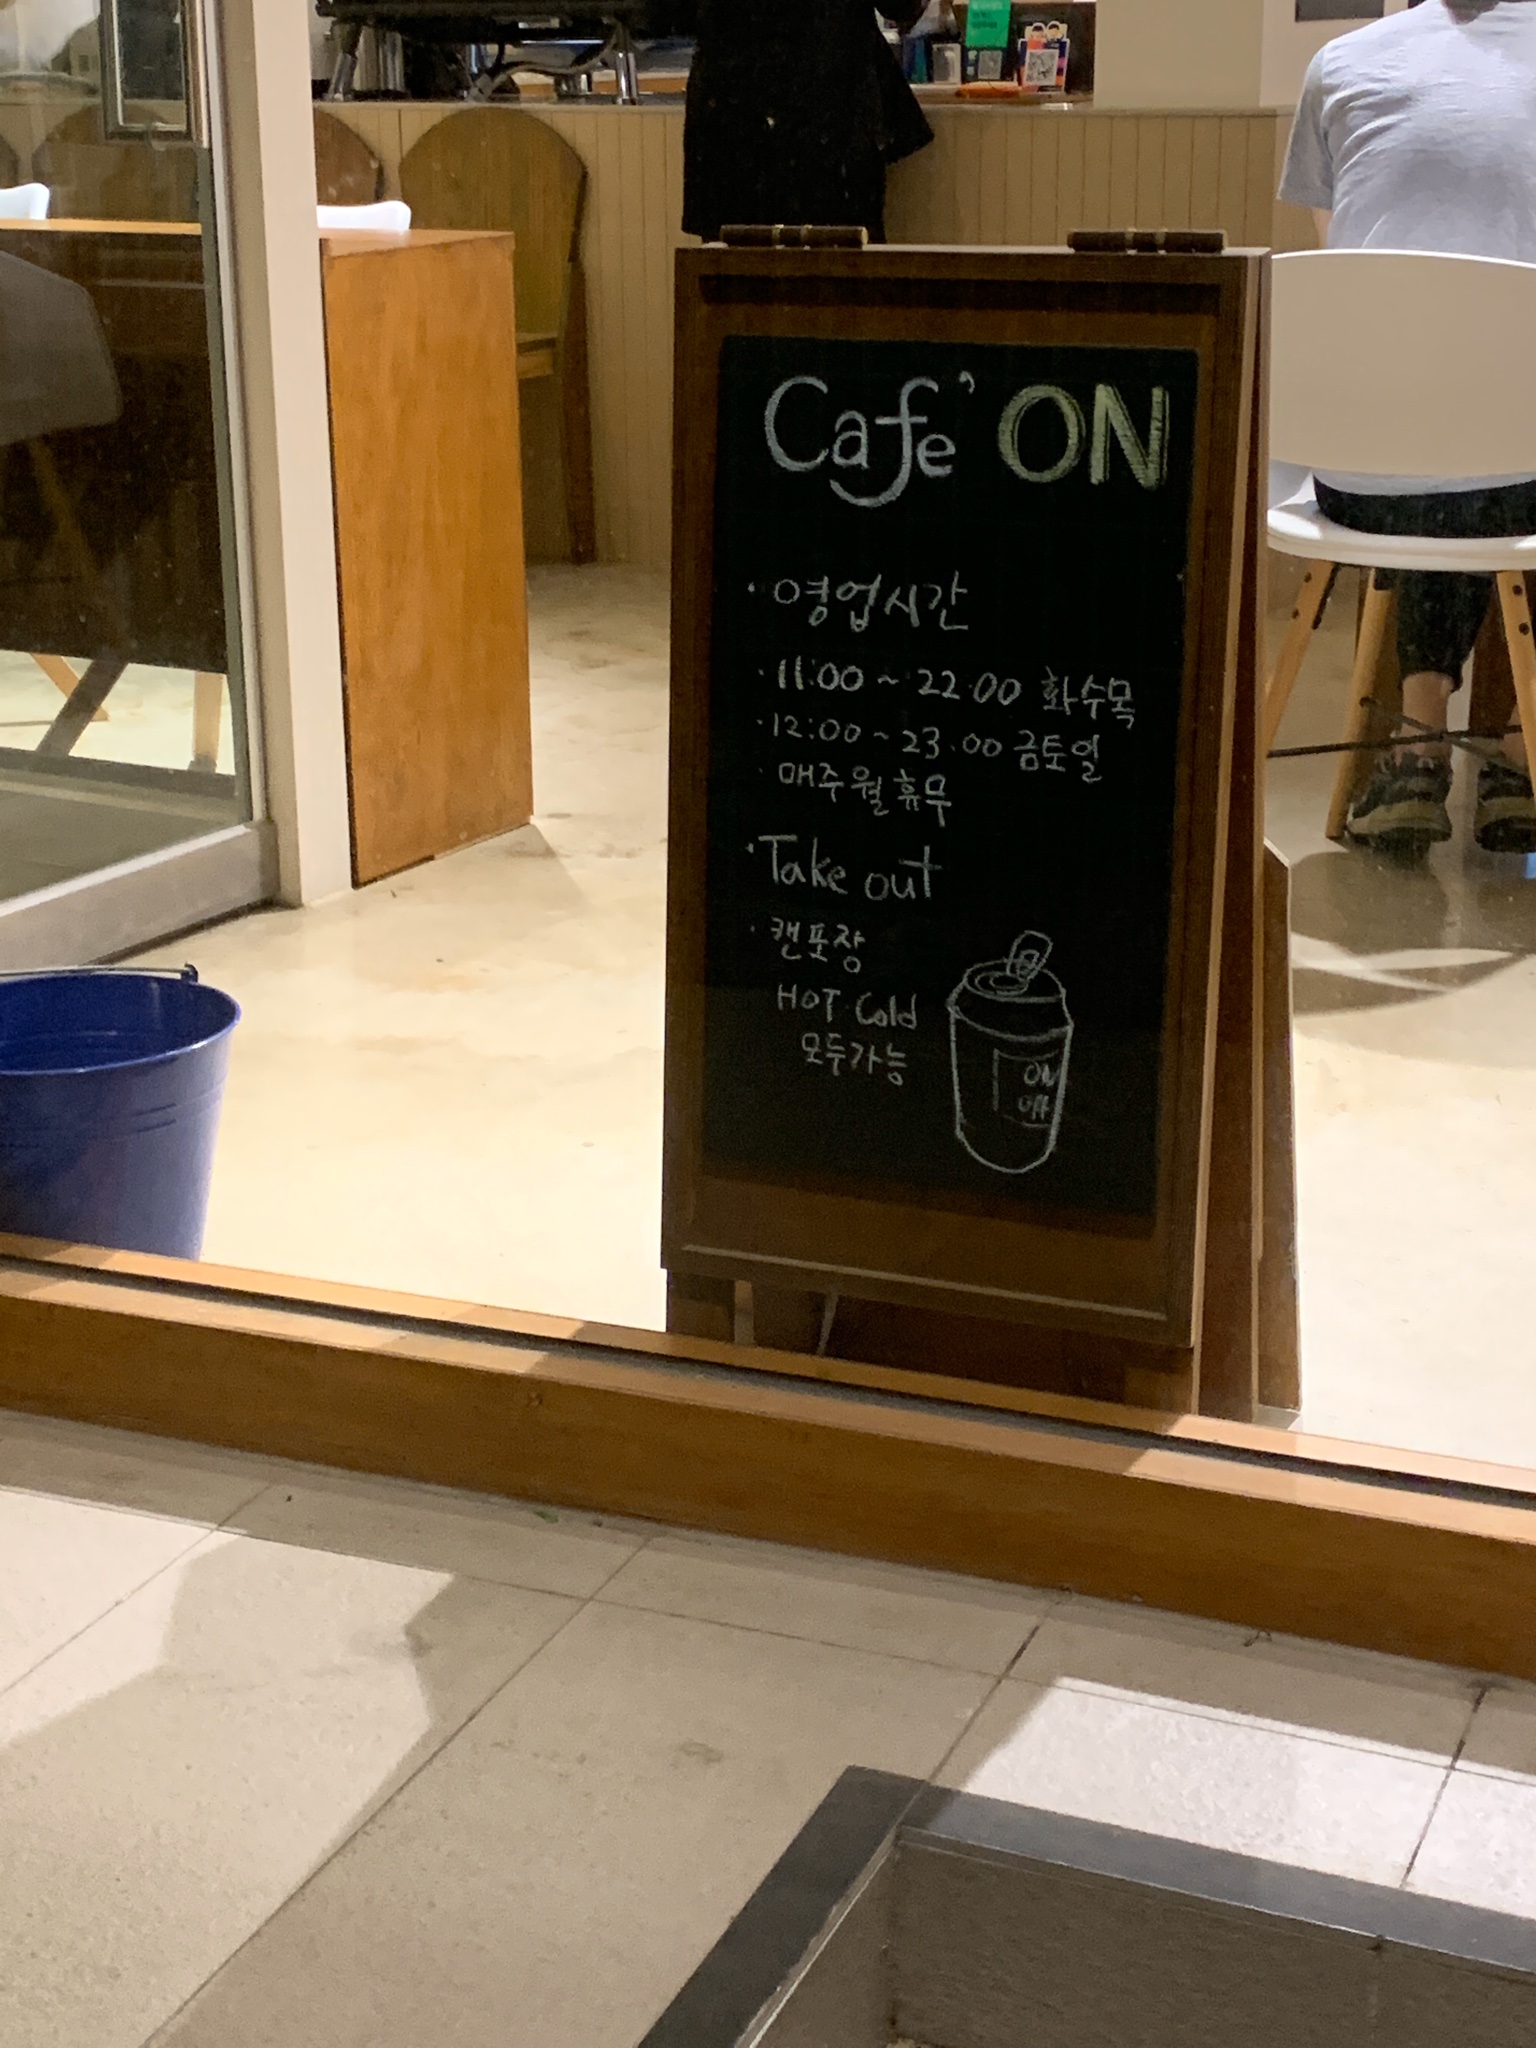 Cafe' ON
· 영업시간
· 11:00 ~ 22:00 화수목
· 12:00 ~ 23:00 금토일
· 매주 월 휴무
· Take out
· 캔포장
HOT Cold
모두가능
ON
off